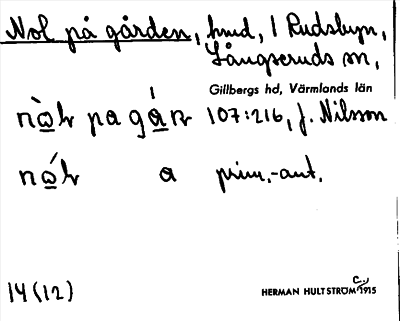 Nol på gården, hmd, 1 Rudsbyn,
Långseruds sn,
Gillbergs hd, Värmlands län
107:216, J. Nilsson
a prim.-ant.
14 (12)
HERMAN HULTSTRÖM C., 1915